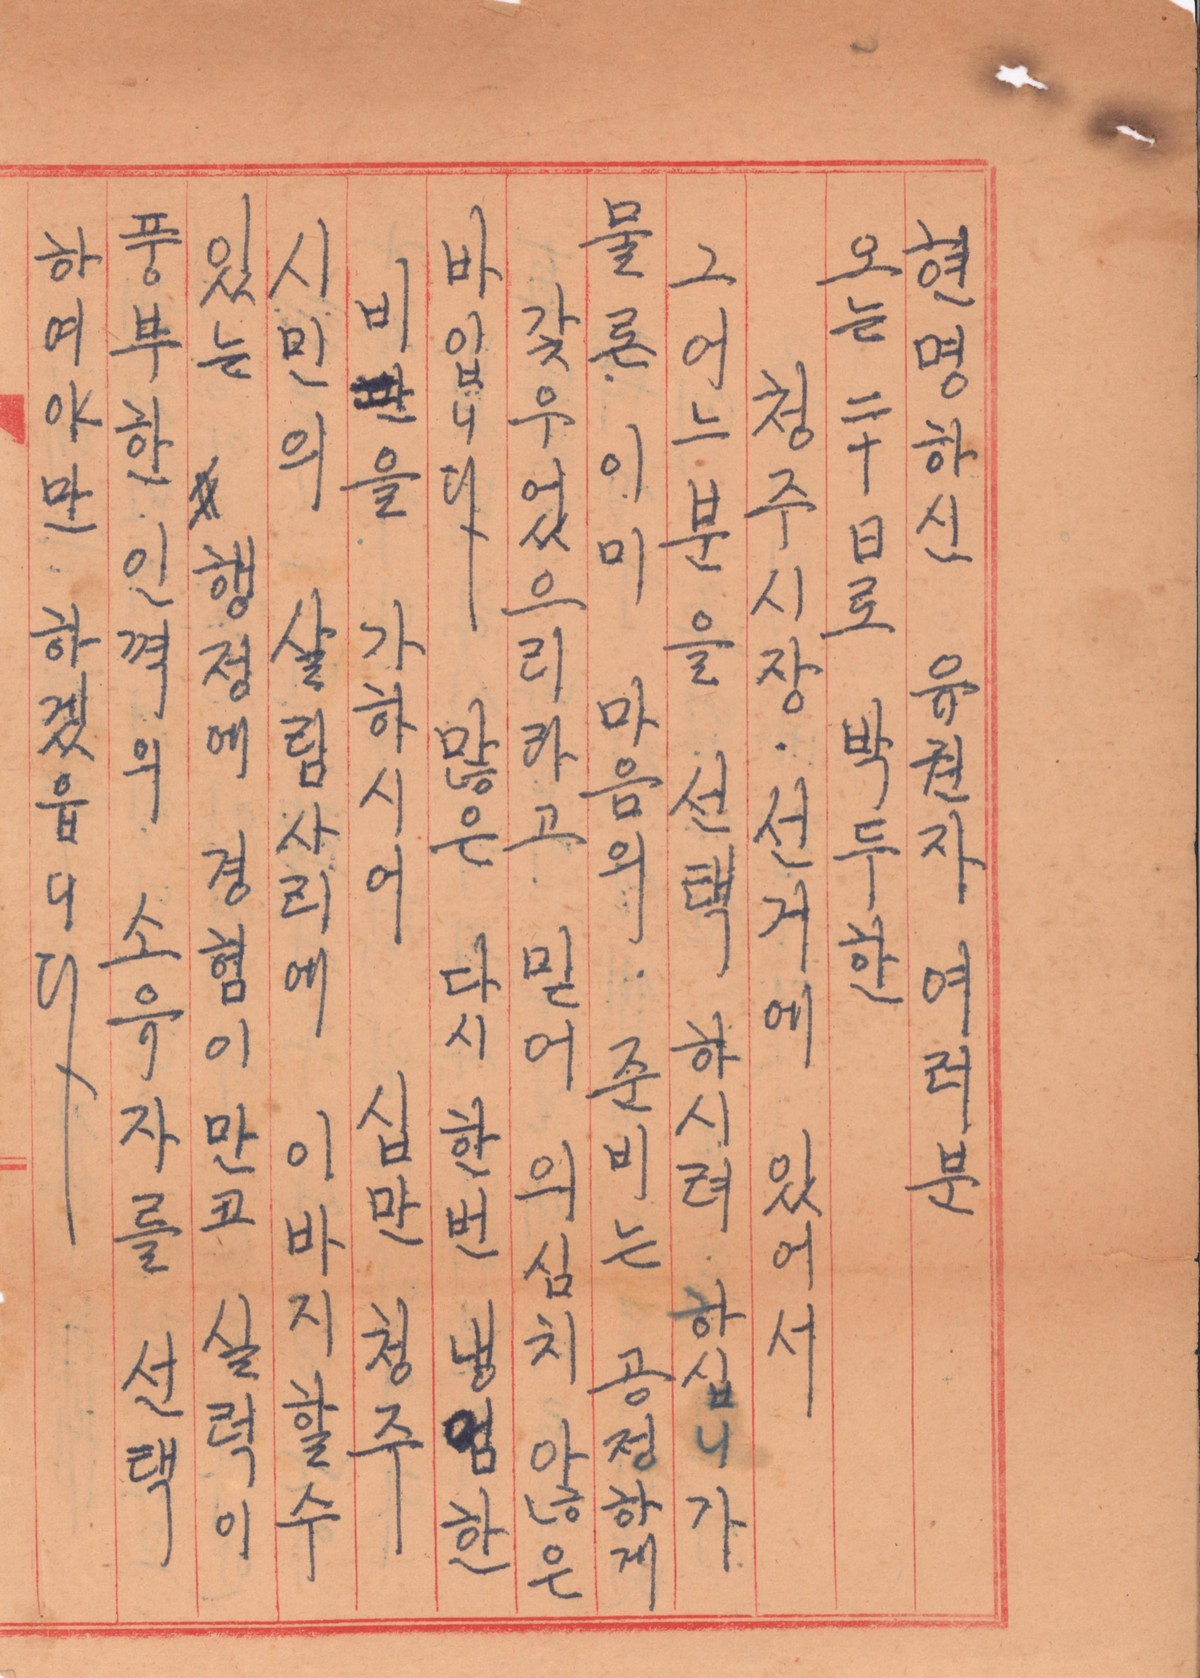 현명하신 유권자 여러분
오는 二十日로 박두한
청주시장·선거에 있어서
그어느분을 선택 하시려 하십니가
물론 이미 마음의 준비는 공정하게
갖우었으리라고 믿어 의심치 않은
바입니다 많은 다시 한번 냉엄한
비판을 가하시어 심만 청주
시민의 살림사리에 이바지할수
있는 행정에 경험이 만코 실력이
풍부한 인격의 소유자를 선택
하여야만 하겠읍니다